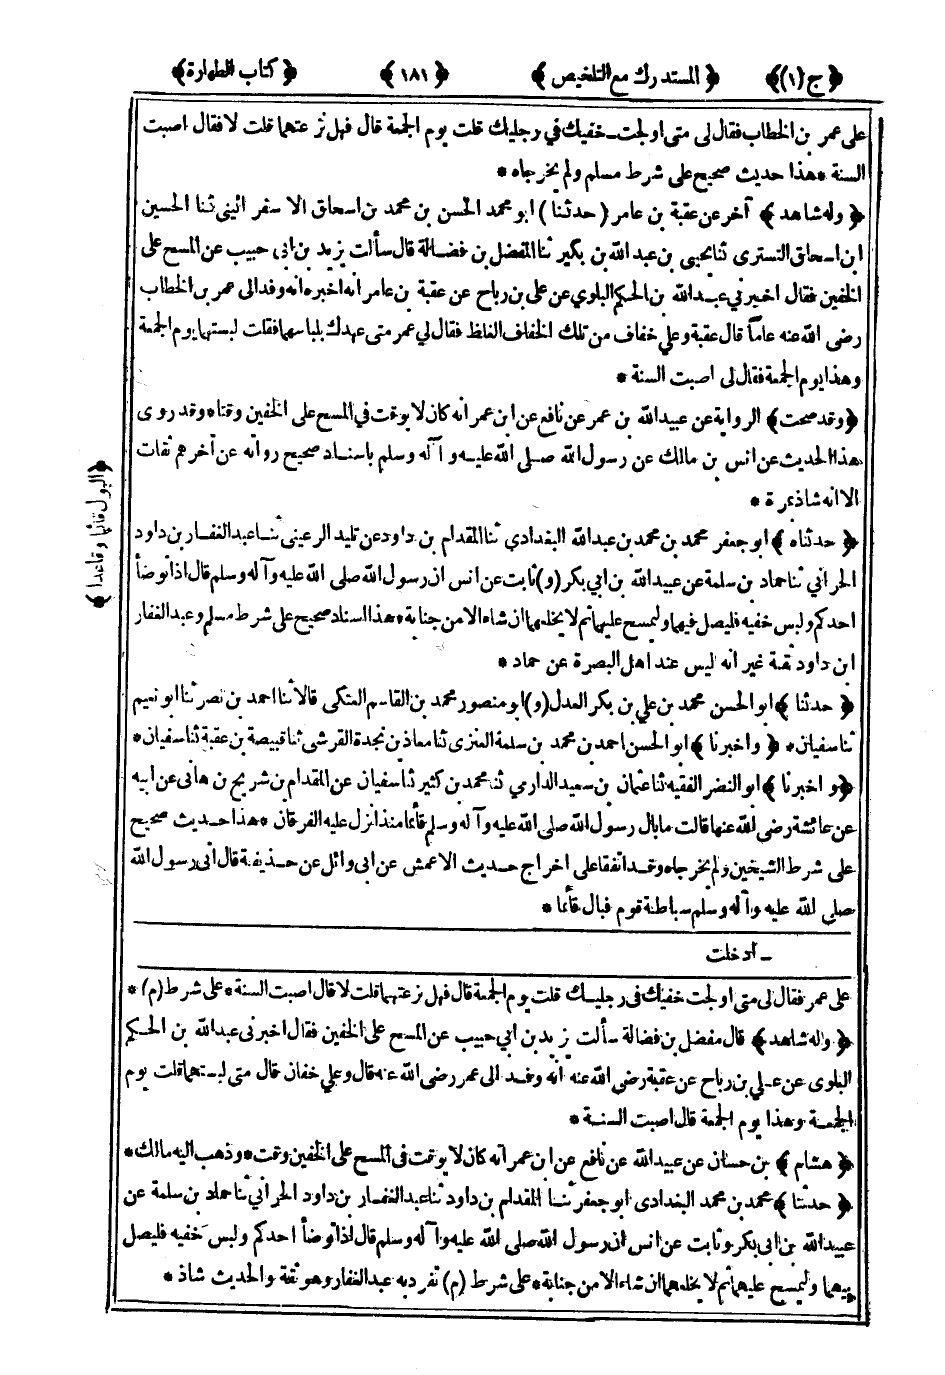 ﴿ ج (١) ﴾ ﴿ المستدرك مع التلخيص ﴾ ﴿ ١٨١ ﴾ ﴿ كتاب الطهارة ﴾
على عمر بن الخطاب فقال لى متى اولجت خفيك في رجليك قلت يوم الجمعة قال فهل نزعتهما قلت لا فقال اصبت
السنة * هذا حديث صحيح على شرط مسلم ولم يخرجاه *
﴿ وله شاهد ﴾ آخر عن عقبة بن عامر ( حدثنا ) ابو محمد الحسن بن محمد بن اسحاق الاسفرائينى ثنا الحسين
ابن اسحاق التسترى ثنا يحيى بن عبد الله بن بكير ثنا المفضل بن فضالة قال سألت يزيد بن ابى حبيب عن المسح على
الخفين فقال اخبرني عبد الله بن الحكم البلوي عن على بن رباح عن عقبة بن عامر انه اخبره انه وفد الى عمر بن الخطاب
رضى الله عنه عاماً قال عقبة وعلي خفاف من تلك الخفاف الغلظ فقال لي عمر متى عهدك بلباسها فقلت لبستها يوم الجمعة
وهذا يوم الجمعة فقال لى اصبت السنة *
﴿ وقد صحت ﴾ الرواية عن عبيد الله بن عمر عن نافع عن ابن عمر انه كان لا يوقت في المسح على الخفين وقتا * وقد روى
هذا الحديث عن انس بن مالك عن رسول الله صلى الله عليه وآله وسلم باسناد صحيح رواته عن آخرهم ثقات
الا انه شاذ بمرة *
﴿ حدثناه ﴾ ابو جعفر محمد بن محمد بن عبد الله البغدادي ثنا المقدام بن داود عن تليد الرعينى ثنا عبد الغفار بن داود
الحرانى ثنا حماد بن سلمة عن عبيد الله بن ابي بكر (و) ثابت عن انس ان رسول الله صلى الله عليه وآله وسلم قال اذا توضأ
احدكم ولبس خفيه فليصل فيهما وليمسح عليهما ثم لا يخلعهما ان شاء الا من جنابة * هذا اسناد صحيح على شرط مسلم وعبد الغفار
ابن داود ثقة غير انه ليس عند اهل البصرة عن حماد *
﴿ حدثنا ﴾ ابو الحسن محمد بن علي بن بكر العدل (و) ابو منصور محمد بن القاسم العتكى قالا ثنا احمد بن نصر ثنا ابو نعيم
ثنا سفيان * ﴿ واخبرنا ﴾ ابو الحسن احمد بن محمد بن سلمة العنزى ثنا معاذ بن نجدة القرشى ثنا قبيصة بن عقبة ثنا سفيان *
﴿ واخبرنا ﴾ ابو النضر الفقيه ثنا عثمان بن سعيد الدارمي ثنا محمد بن كثير ثنا سفيان عن المقدام بن شريح بن هانى عن ابيه
عن عائشة رضى الله عنها قالت ما بال رسول الله صلى الله عليه وآله وسلم قائما منذ انزل عليه الفرقان * هذا حديث صحيح
على شرط الشيخين ولم يخرجاه وقد اتفقا على اخراج حديث الاعمش عن ابى وائل عن حذيفة قال اتى رسول الله
صلى الله عليه وآله وسلم سباطة قوم فبال قائما *
﴿ البول قائما وقاعدا ﴾
ـ ادخلت
على عمر فقال لى متى اولجت خفيك فى رجليك قلت يوم الجمعة قال فهل نزعتهما قلت لا قال اصبت السنة * على شرط (م) *
﴿ وله شاهد ﴾ قال مفضل بن فضالة سألت يزيد بن ابي حبيب عن المسح على الخفين فقال اخبرنى عبد الله بن الحكم
البلوى عن علي بن رباح عن عقبة رضى الله عنه انه وفد الى عمر رضى الله عنه قال وعلي خفان قال متى لبستهما قلت يوم
الجمعة وهذا يوم الجمعة قال اصبت السنة *
﴿ هشام ﴾ بن حسان عن عبيد الله عن نافع عن ابن عمر انه كان لا يوقت فى المسح على الخفين وقت * وذهب اليه مالك *
﴿ حدثنا ﴾ محمد بن محمد البغدادى ابو جعفر ثنا المقدام بن داود ثنا عبد الغفار بن داود الحرانى ثنا حماد بن سلمة عن
عبيد الله بن ابى بكر وثابت عن انس ان رسول الله صلى الله عليه وآله وسلم قال اذا توضأ احدكم ولبس خفيه فليصل
فيهما وليمسح عليهما ثم لا يخلعهما ان شاء الا من جنابة * على شرط (م) تفرد به عبد الغفار وهو ثقة والحديث شاذ *